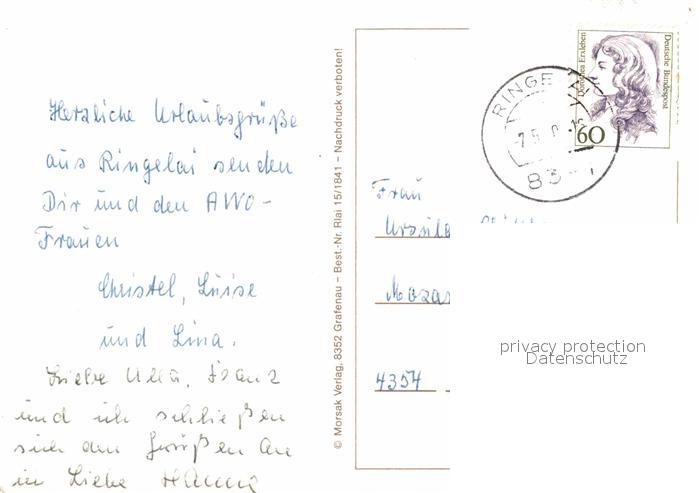 Herzliche Urlaubsgrüße
aus Ringelai senden
Dir und den AWO-
Frauen
Christel, Luise
und Lina.
Liebe Ulla, Franz
und ich schließen
sich den Grüßen an
in Liebe Hanna
© Morsak Verlag, 8352 Grafenau – Best.-Nr. Rlai 15/1841 – Nachdruck verboten!
Dorothea Erxleben
Deutsche Bundespost
60
RINGE
-7.5.
83
Frau
Ursula
Mozar
4354
privacy protection
Datenschutz